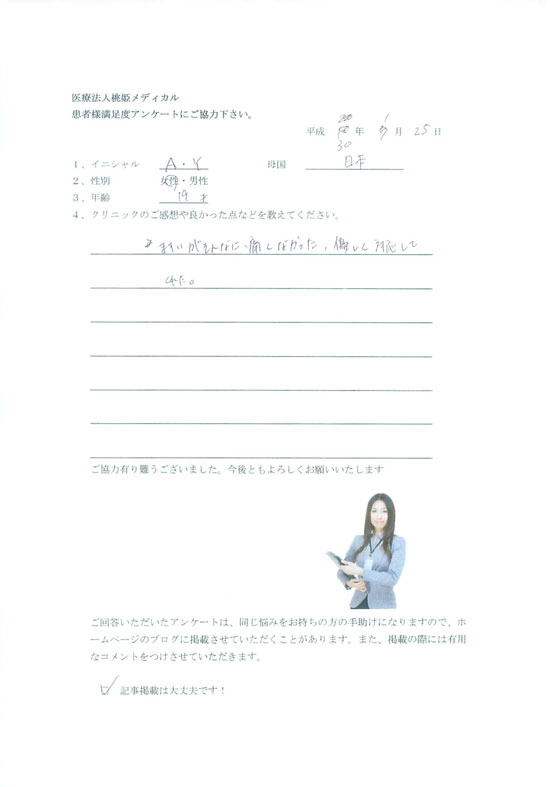 医療法人桃姫メディカル
患者様満足度アンケートにご協力下さい。
平成 30 年 1 月 25 日
1、イニシャル A・Y 母国 日本
2、性別 女性・男性
3、年齢 19才
4、クリニックのご感想や良かった点などを教えてください。
ますいがそんなに痛くなかった。優しく対応して
くれた。
ご協力有り難うございました。今後ともよろしくお願いいたします
ご回答いただいたアンケートは、同じ悩みをお持ちの方の手助けになりますので、ホ
ームページのブログに掲載させていただくことがあります。また、掲載の際には有用
なコメントをつけさせていただきます。
記事掲載は大丈夫です！